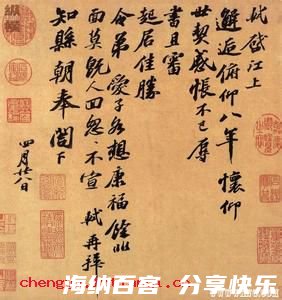 軾啓江上
邂逅俯仰八年懷仰
世契感悵不已辱
書且審
起居佳勝
令弟愛子各想康福餘非
面莫既人回怱怱不宣 軾再拜
知縣朝奉閣下
四月廿八日
海纳百客 分享快乐